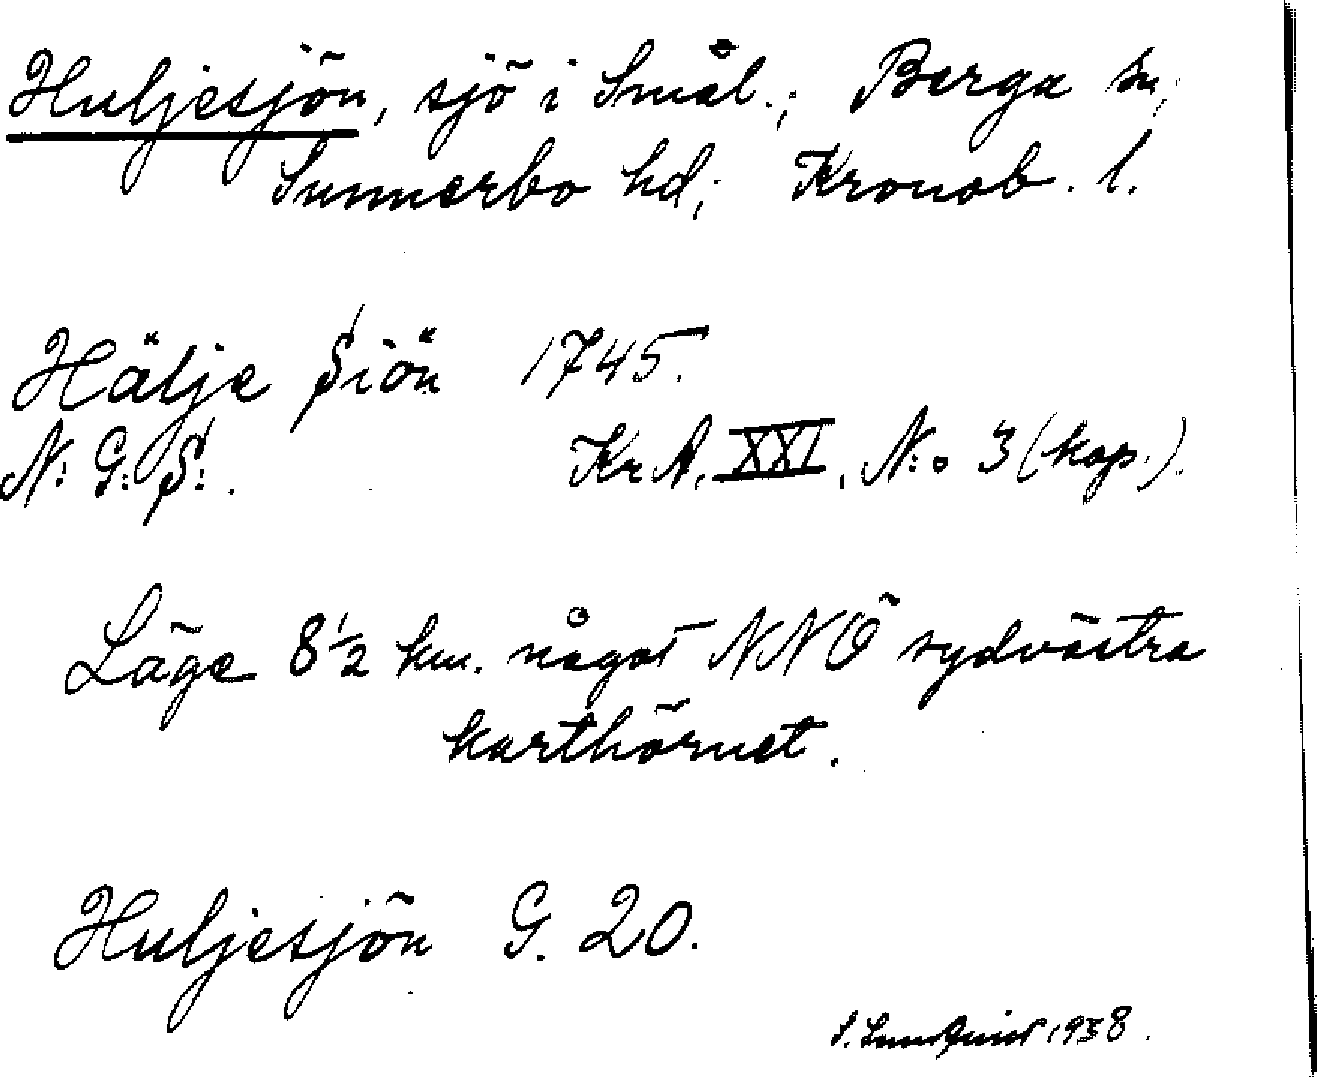 Huljesjön, sjö i Smål.; Berga sn;
Sunnerbo hd; Kronob. l.
Hälje Siön 1745.
N: G: S: . Kr A. XXI, N:o 3 (kop.).
Läge 8½ km. något NNÖ sydvästra
karthörnet.
Huljesjön G. 20.
1938.